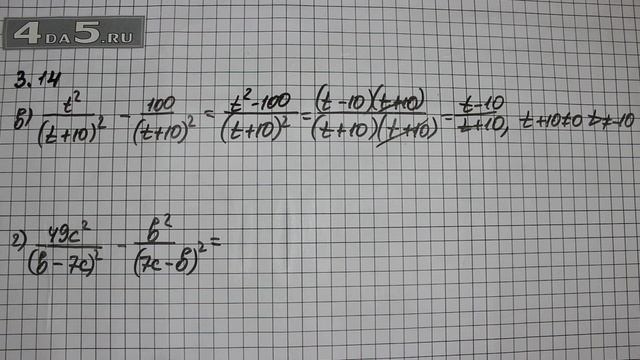 4DA5.RU
3.14
в) t²/(t+10)² - 100/(t+10)² = t²-100/(t+10)² = (t-10)(t+10)/(t+10)(t+10) = t-10/t+10, t+10≠0 t≠-10
г) 49c²/(b-7c)² - b²/(7c-b)² =